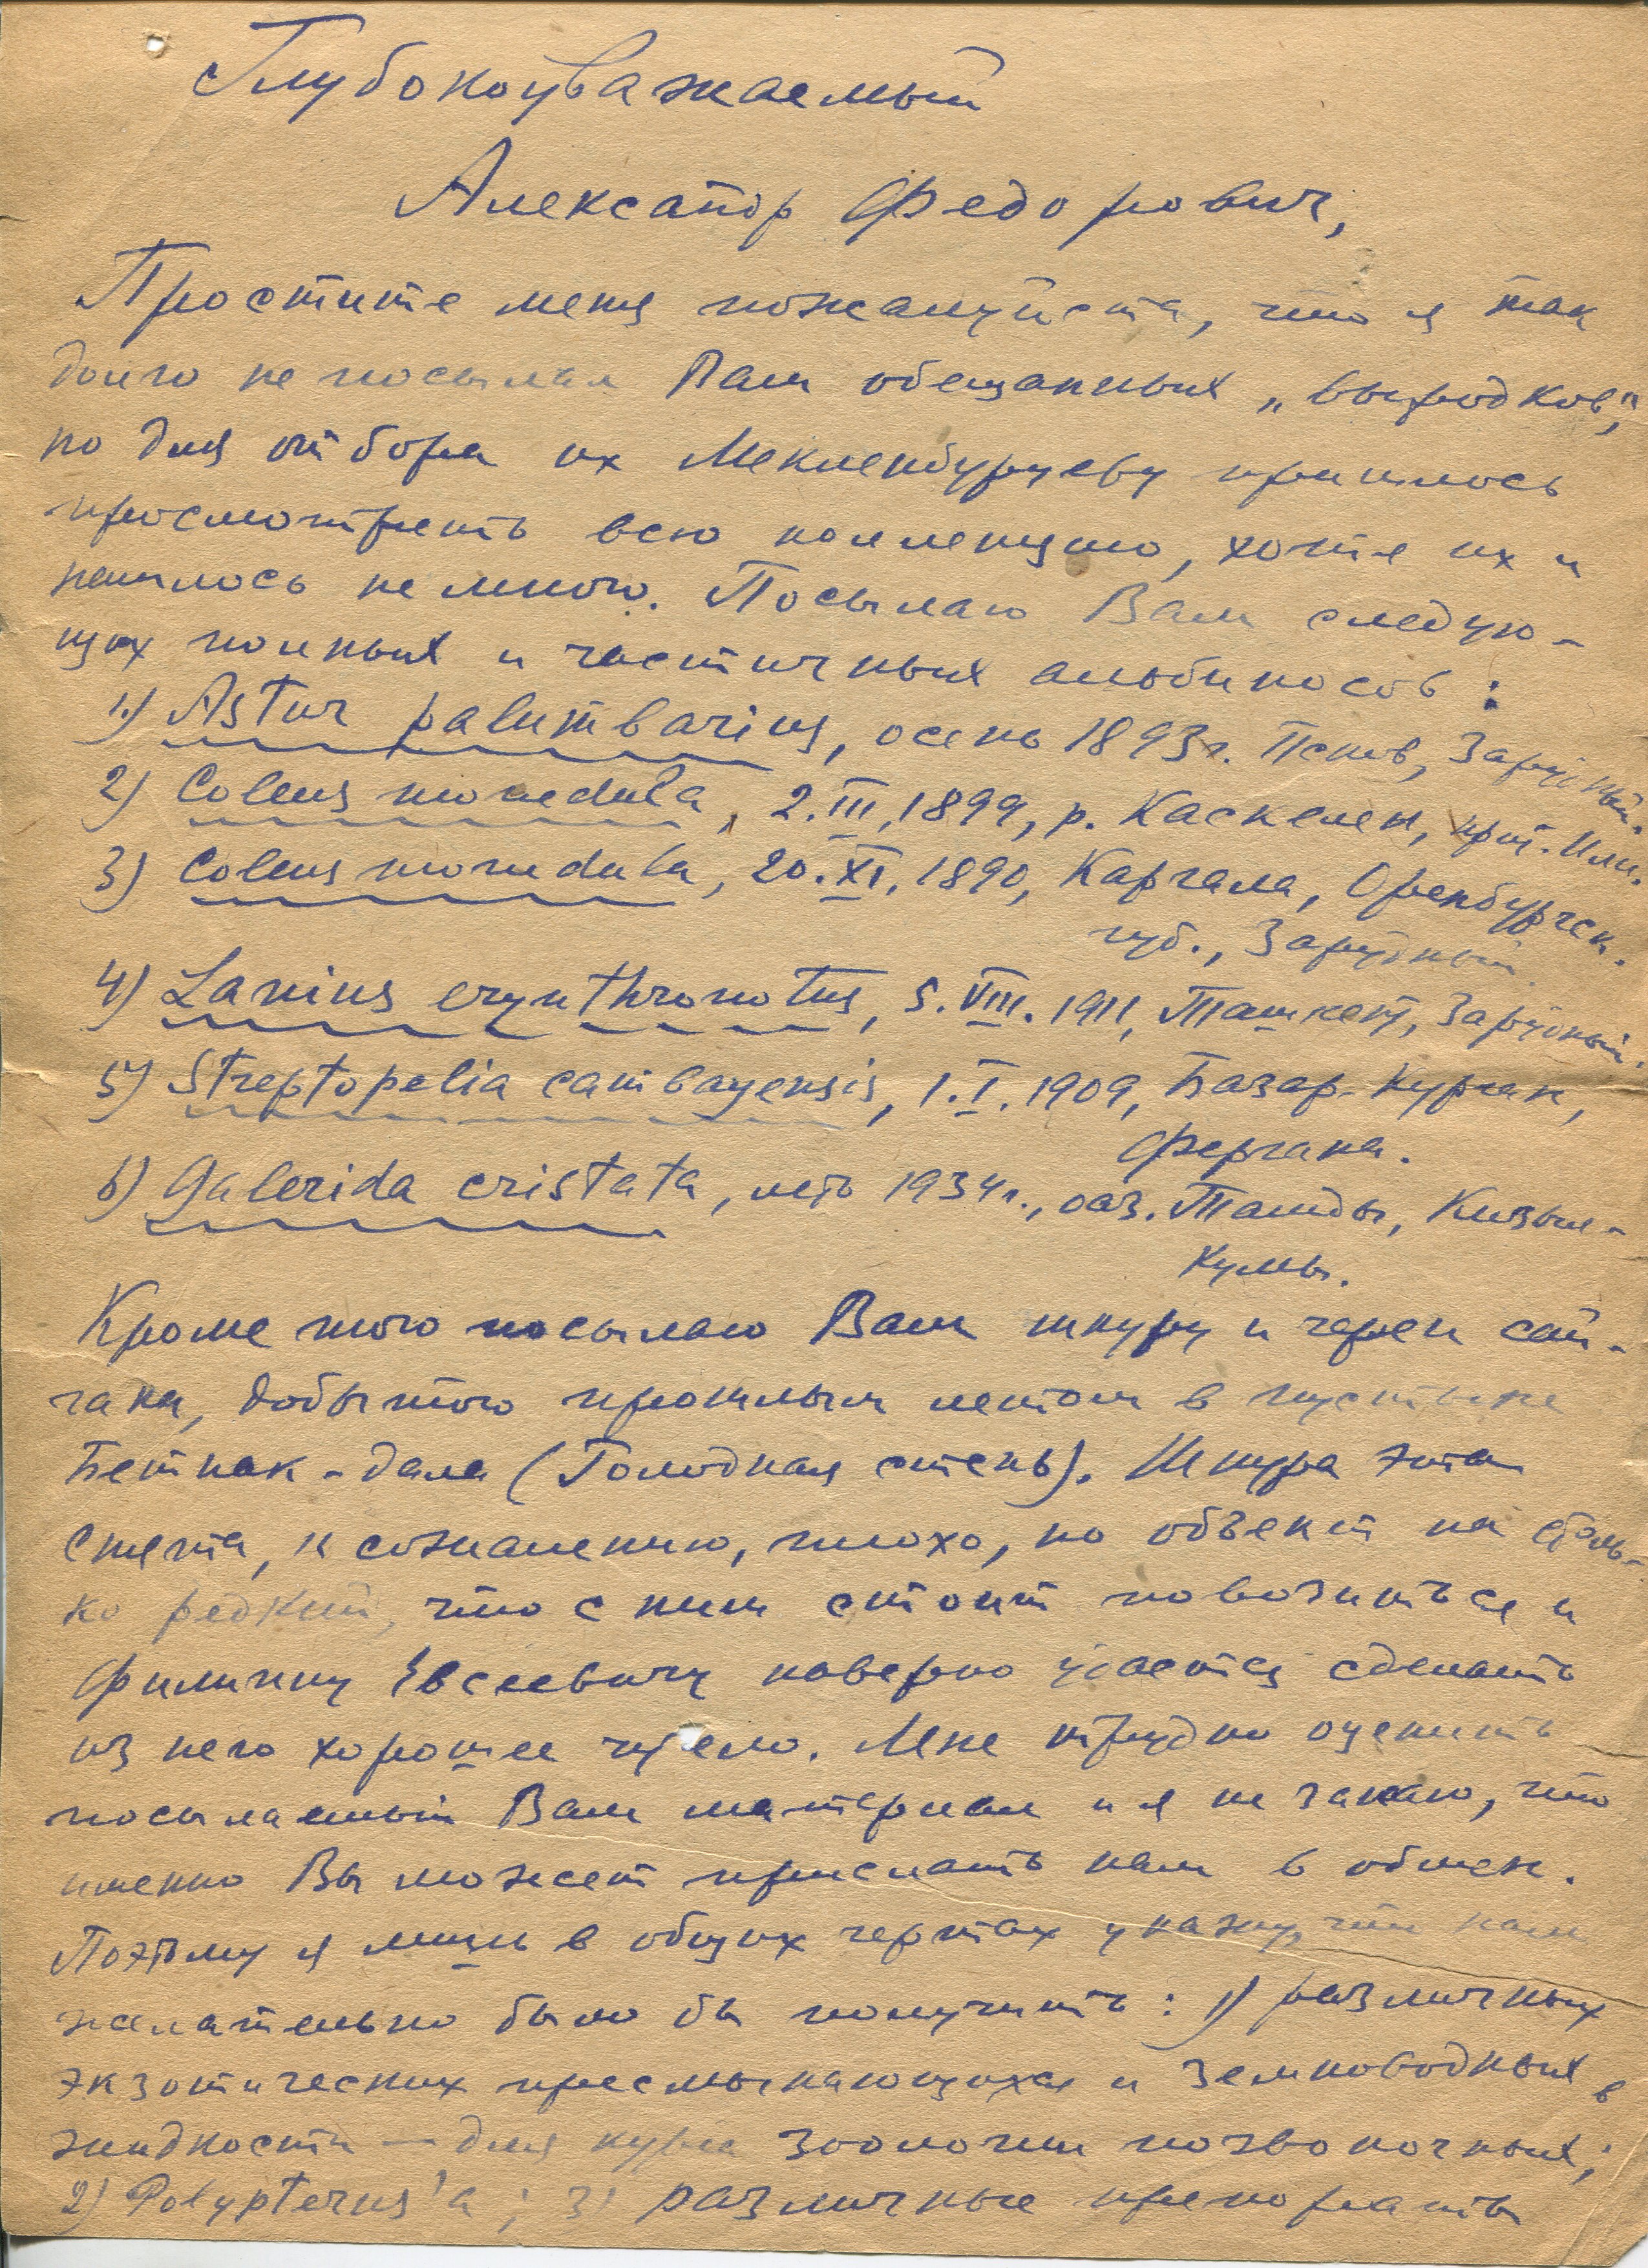 Глубокоуважаемый
Александр Федорович,
Простите меня пожалуйста, что я так
долго не посылал Вам обещанных „выродков“,
но для отбора их Мекленбурцеву пришлось
просмотреть всю коллекцию, хотя их и
нашлось не много. Посылаю Вам следую-
щих полных и частичных альбиносов:
1) Astur palumbarius, осень 1893г. Псков, Зарудный.
2) Coleus monedula, 2.III.1899, р. Каскелен, прит. Или.
3) Coleus monedula, 20.XI.1890, Каргала, Оренбургск.
губ., Зарудный
4) Lanius erythronotus, 5.VIII.1911, Ташкент, Зарудный.
5) Streptopelia cambayensis, 1.I.1909, Базар-Курган,
Фергана.
6) Galerida cristata, лето 1934г., оаз. Тамды, Кизыл-
Кумы.
Кроме того посылаю Вам шкуру и череп сай-
гака, добытого прошлым летом в пустыне
Бетпак-дала (Голодная степь). Шкура эта
снята, к сожалению, плохо, но объект на столь-
ко редкий, что с ним стоит повозиться и
Филиппу Евсеевичу наверно удается сделать
из него хорошее чучело. Мне трудно оценить
посылаемый Вам материал и я не знаю, что
именно Вы можете прислать нам в обмен.
Поэтому я лишь в общих чертах укажу, что нам
желательно было бы получить: 1) различных
экзотических пресмыкающихся и земноводных в
жидкости — для курса зоологии позвоночных;
2) Polypterus'а; 3) различные препораты